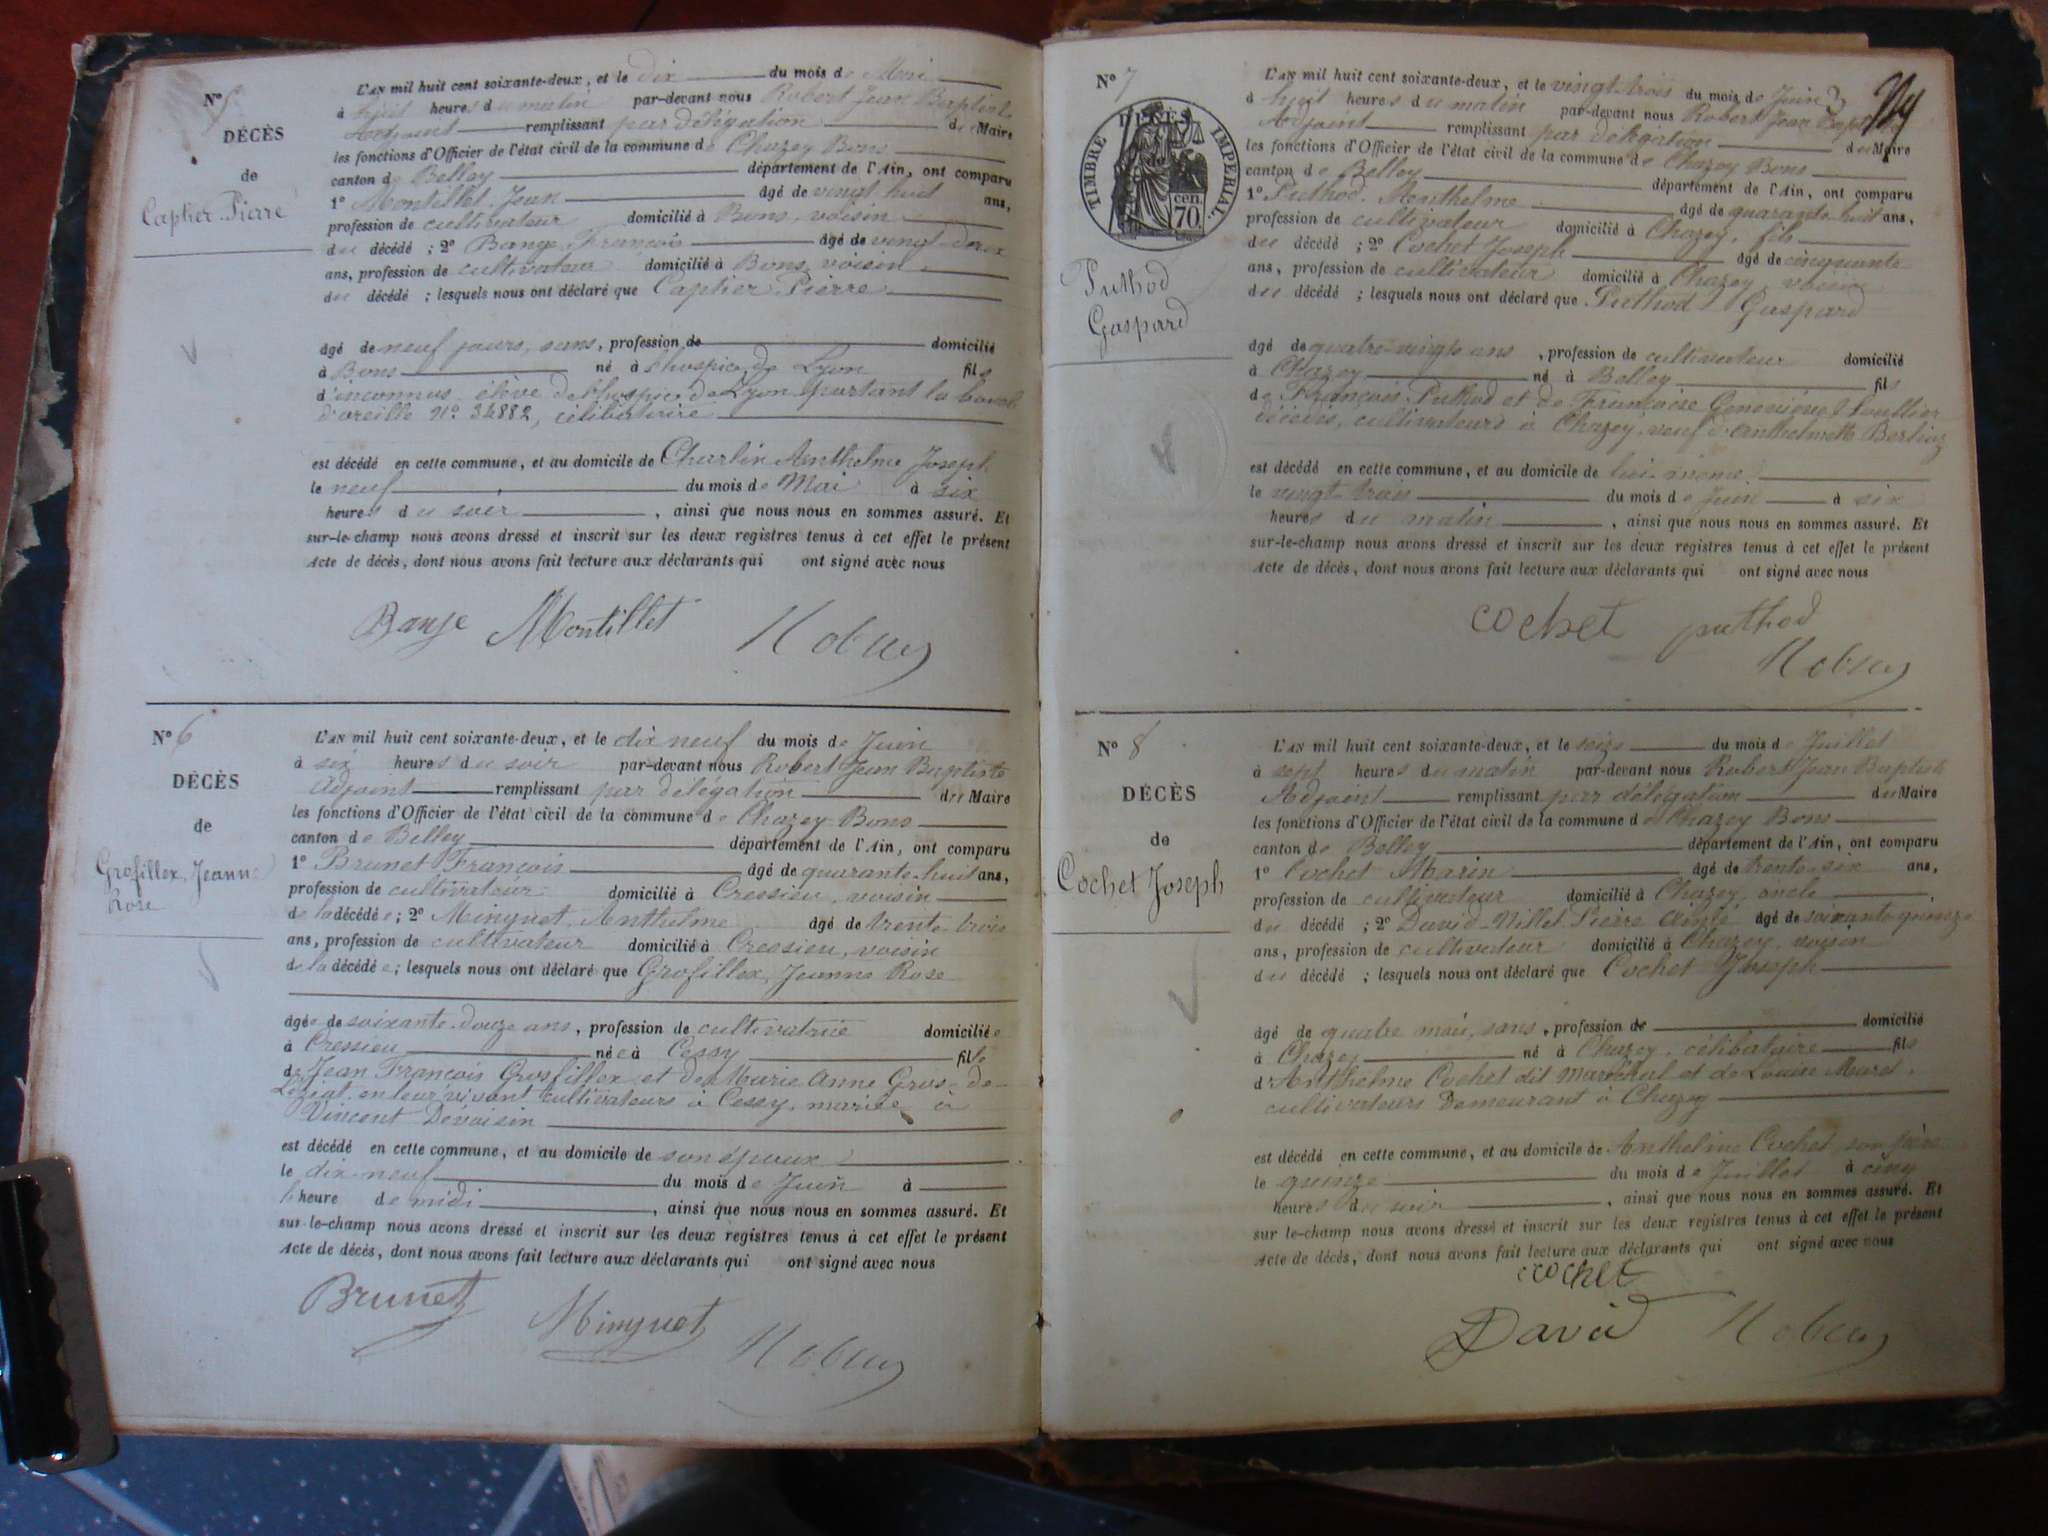 N° 5
DÉCÈS
de
Capher Pierre
L'AN mil huit cent soixante-deux, et le dix du mois de Mai
à huit heures du matin par-devant nous Robert Jean Baptiste
Adjoint remplissant par délégation du Maire
les fonctions d'Officier de l'état civil de la commune de Chazey Bons
canton de Belley département de l'Ain, ont comparu
1° Montillet Jean âgé de vingt huit ans,
profession de cultivateur domicilié à Bons, voisin
du décédé ; 2° Banse François âgé de vingt deux
ans, profession de cultivateur domicilié à Bons, voisin
du décédé ; lesquels nous ont déclaré que Capher Pierre
âgé de neuf jours, sans, profession de domicilié
à Bons né à l'hospice de Lyon fils
d'inconnus, élève de l'hospice de Lyon portant la boucle
d'oreille N° 34882, célibataire
est décédé en cette commune, et au domicile de Charlin Anthelme Joseph
le neuf du mois de Mai à six
heures du soir, ainsi que nous nous en sommes assuré. Et
sur-le-champ nous avons dressé et inscrit sur les deux registres tenus à cet effet le présent
Acte de décès, dont nous avons fait lecture aux déclarants qui ont signé avec nous
Banse Montillet Robert
N° 6
DÉCÈS
de
Grosfillex, Jeanne
Rose
L'AN mil huit cent soixante-deux, et le dix neuf du mois de Juin
à six heures du soir par-devant nous Robert Jean Baptiste
Adjoint remplissant par délégation du Maire
les fonctions d'Officier de l'état civil de la commune de Chazey Bons
canton de Belley département de l'Ain, ont comparu
1° Brunet François âgé de quarante huit ans,
profession de cultivateur domicilié à Cressieu, voisin
de la décédée ; 2° Minguet, Anthelme âgé de trente trois
ans, profession de cultivateur domicilié à Cressieu, voisin
de la décédée ; lesquels nous ont déclaré que Grosfillex, Jeanne Rose
âgée de soixante douze ans, profession de cultivatrice domiciliée
à Cressieu née à Cessy fille
de Jean François Grosfillex et de Marie Anne Gros de
en leur vivant cultivateurs à Cessy, mariée à
Vincent Devoisin
est décédé en cette commune, et au domicile de son époux
le dix neuf du mois de Juin à
l'heure de midi, ainsi que nous nous en sommes assuré. Et
sur-le-champ nous avons dressé et inscrit sur les deux registres tenus à cet effet le présent
Acte de décès, dont nous avons fait lecture aux déclarants qui ont signé avec nous
Brunet Minguet Robert
N° 7
TIMBRE IMPÉRIAL.
DÉCÈS
de
cen.
70.
Puthod
Gaspard
L'AN mil huit cent soixante-deux, et le vingt trois du mois de Juin 3
à huit heures du matin par-devant nous Robert Jean Baptiste
Adjoint remplissant par délégation du Maire
les fonctions d'Officier de l'état civil de la commune de Chazey Bons
canton de Belley département de l'Ain, ont comparu
1° Puthod, Anthelme âgé de quarante huit ans,
profession de cultivateur domicilié à Chazey, fils
du décédé ; 2° Cochet Joseph âgé de cinquante
ans, profession de cultivateur domicilié à Chazey, voisin
du décédé ; lesquels nous ont déclaré que Puthod Gaspard
âgé de quatre-vingts ans, profession de cultivateur domicilié
à Chazey né à Belley fils
de François Puthod et de Françoise Geneviève
décédés, cultivateurs à Chazey, veuf d'Anthelmette Berlioz
est décédé en cette commune, et au domicile de lui-même
le vingt trois du mois de juin à six
heures du matin, ainsi que nous nous en sommes assuré. Et
sur-le-champ nous avons dressé et inscrit sur les deux registres tenus à cet effet le présent
Acte de décès, dont nous avons fait lecture aux déclarants qui ont signé avec nous
cochet puthod
Robert
N° 8
DÉCÈS
de
Cochet Joseph
L'AN mil huit cent soixante-deux, et le seize du mois de Juillet
à sept heures du matin par-devant nous Robert Jean Baptiste
Adjoint remplissant par délégation du Maire
les fonctions d'Officier de l'état civil de la commune de Chazey Bons
canton de Belley département de l'Ain, ont comparu
1° Cochet Marin âgé de trente six ans,
profession de cultivateur domicilié à Chazey, oncle
du décédé ; 2° David-Nillet Pierre Aîné âgé de soixante quinze
ans, profession de cultivateur domicilié à Chazey, voisin
du décédé ; lesquels nous ont déclaré que Cochet Joseph
âgé de quatre mois, sans, profession de domicilié
à Chazey né à Chazey, célibataire fils
d'Anthelme Cochet dit Maréchal et de Louise Muret,
cultivateurs Demeurant à Chazey
est décédé en cette commune, et au domicile de Anthelme Cochet, son père
le quinze du mois de Juillet à cinq
heures du soir, ainsi que nous nous en sommes assuré. Et
sur-le-champ nous avons dressé et inscrit sur les deux registres tenus à cet effet le présent
Acte de décès, dont nous avons fait lecture aux déclarants qui ont signé avec nous
cochet
David Robert